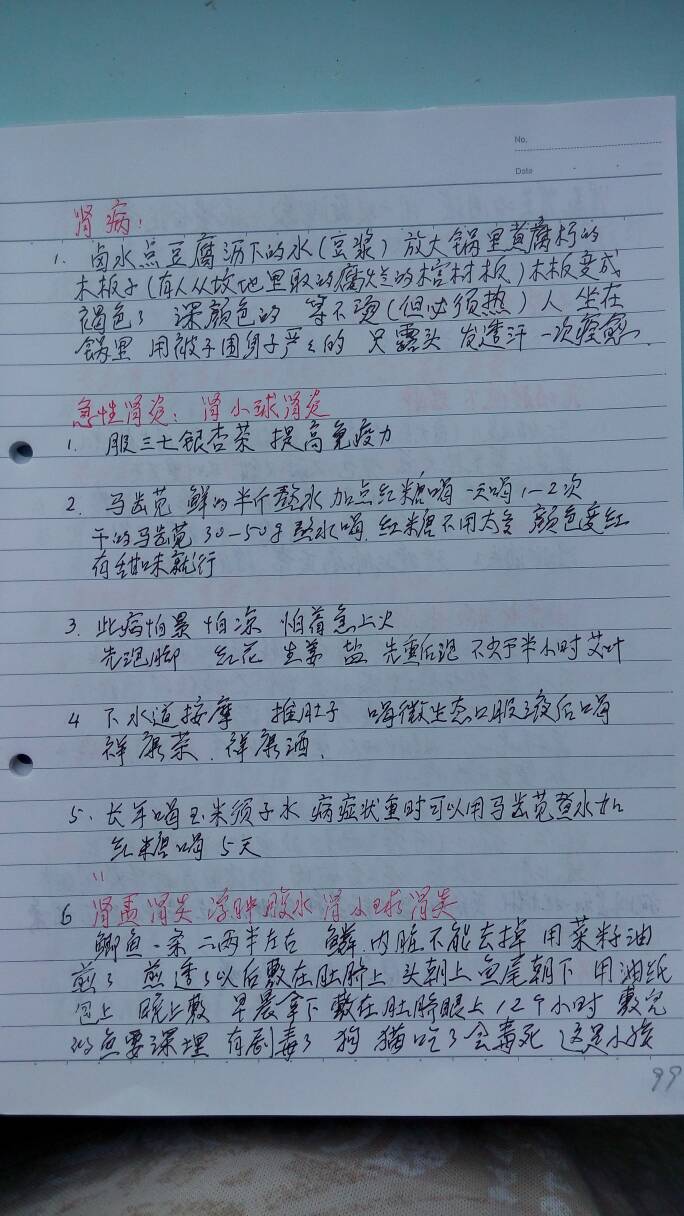 No.
Date
肾病:
1. 卤水点豆腐沥下的水(豆浆) 放大锅里煮腐朽的
木板子(有人从坟地里取的腐烂的棺材板)木板变成
褐色了 深颜色的 等不烫(但必须热) 人 坐在
锅里 用被子围身子严严的 只露头 发透汗 一次痊愈.
急性肾炎: 肾小球肾炎
1. 服三七银杏茶 提高免疫力
2. 马齿苋 鲜的半斤熬水 加点红糖喝 一天喝1—2次
干的马齿苋 30—50g 熬水喝. 红糖不用太多 颜色变红
有甜味就行
3. 此病怕累 怕凉 怕着急上火
先泡脚 红花 生姜 盐 先熏后泡 不少于半小时 艾叶
4 下水道按摩 推肚子 喝微生态口服液后喝
祥康茶. 祥康酒.
5. 长年喝玉米须子水 病症状重时可以用马齿苋煮水加
红糖喝 5天
6 肾盂肾炎 浮肿腹水 肾小球肾炎
鲫鱼一条 二两半左右 鳞. 内脏不能去掉 用菜籽油
煎了 煎透了以后敷在肚脐上 头朝上 鱼尾朝下 用油纸
包上 晚上敷 早晨拿下 敷在肚脐眼上 12个小时 敷完
的鱼要深埋 有剧毒了 狗 猫吃了会毒死 这是小孩
99